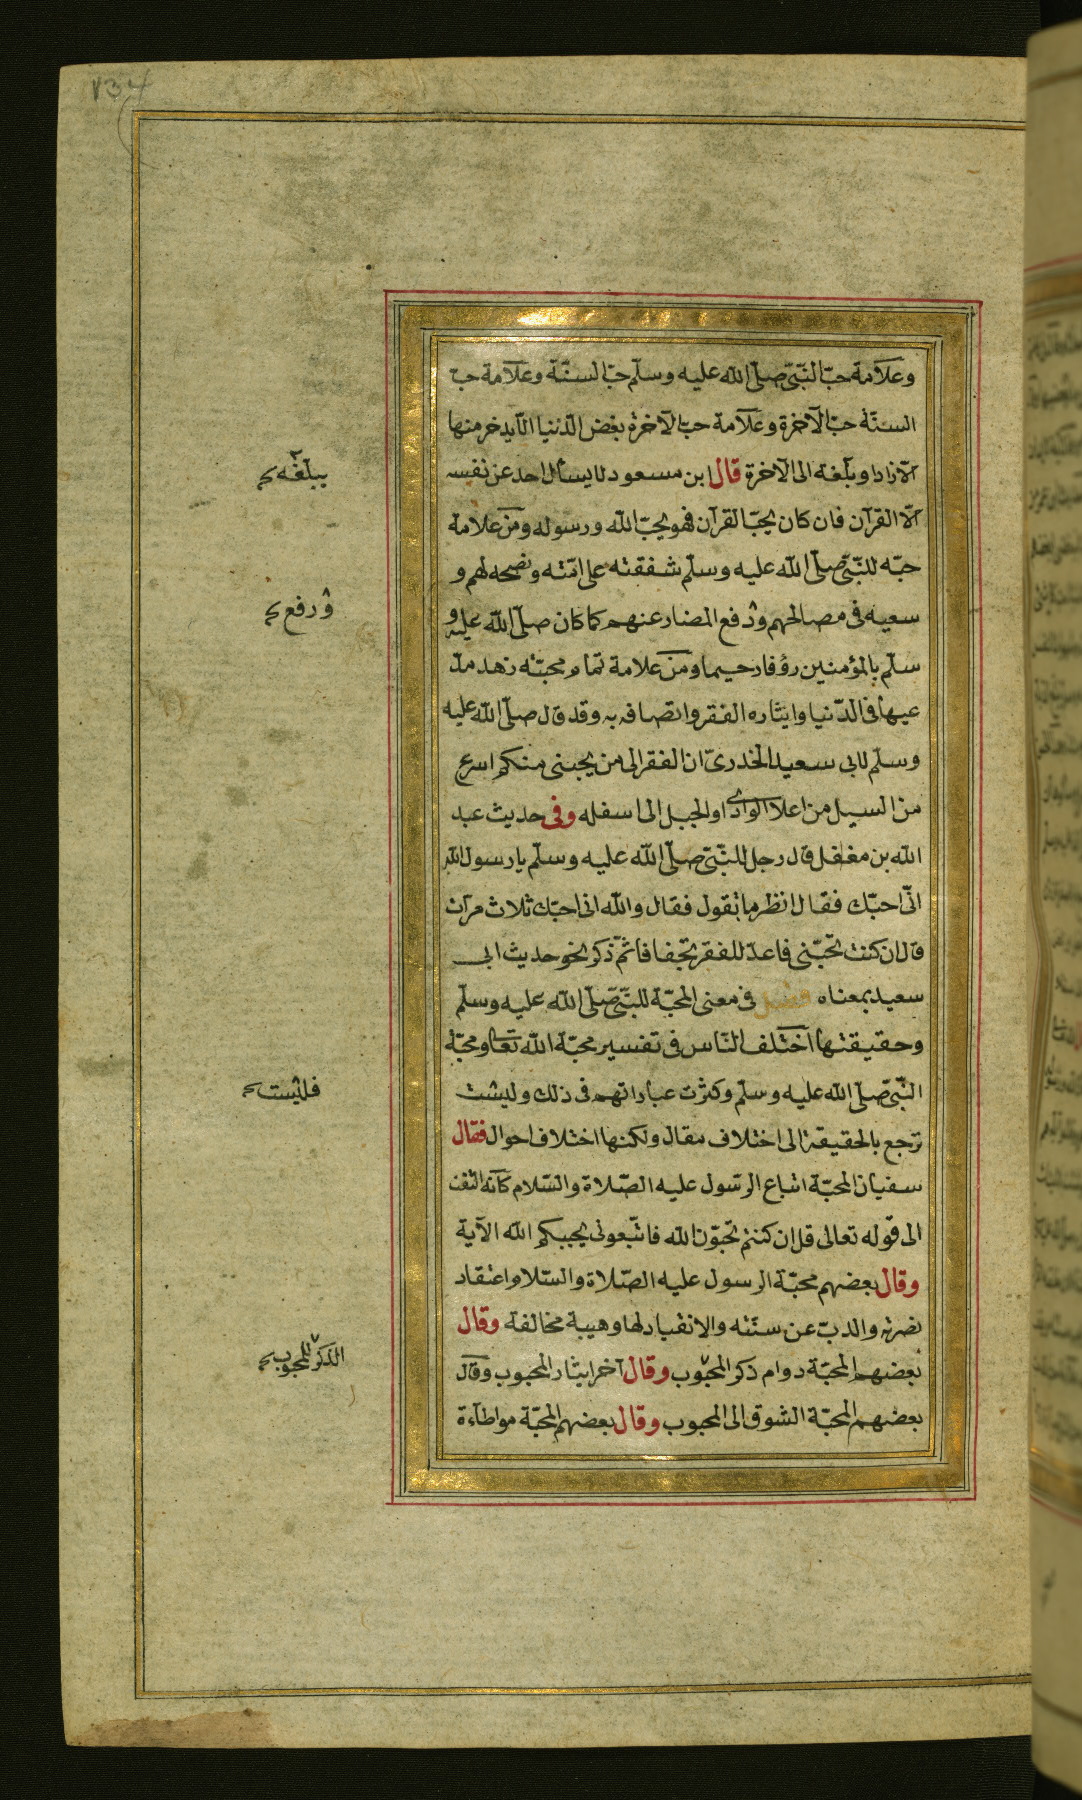 وعلامة حبّ النّبيّ صلّى الله عليه وسلّم حبّ السنّة وعلامة حبّ
السنّة حبّ الآخرة وعلامة حبّ الآخرة بغض الدّنيا الّا يدخر منها
الّا زادا وبلغة الى الآخرة قال ابن مسعود لا يسأل احد عن نفسه
الّا القرآن فان كان يحبّ القرآن فهو يحبّ الله ورسوله ومن علامة
حبّه للنّبيّ صلّى الله عليه وسلّم شفقته على امّته ونصحه لهم و
سعيه فى مصالحهم ودفع المضار عنهم كما كان صلّى الله عليه و
سلّم بالمؤمنين رؤفا رحيما ومن علامة تمام محبّته زهد مدّ
عيها فى الدّنيا وايثاره الفقر واتصافه به وقد قال صلّى الله عليه
وسلّم لابى سعيد الخدرىّ ان الفقر الى من يحبنى منكم اسرع
من السيل من اعلا الوادى او الجبل الى اسفله وفى حديث عبد
الله بن مغفل قال رجل للنّبيّ صلّى الله عليه وسلّم يا رسول الله
انّى احبّك فقال انظر ما تقول فقال والله انى احبّك ثلاث مرات
قال ان كنت تحبّنى فاعدّ للفقر تجفافا ثمّ ذكر نحو حديث ابى
سعيد بمعناه فصل فى معنى المحبّة للنّبيّ صلّى الله عليه وسلّم
وحقيقتها اختلف النّاس فى تفسير محبّة الله تعا ومحبّة
النّبيّ صلّى الله عليه وسلّم وكثرت عباراتهم فى ذلك وليست
ترجع بالحقيقة الى اختلاف مقال ولكنها اختلاف احوال فقال
سفيان المحبّة اتباع الرّسول عليه الصّلاة والسّلام كانّه التفت
الى قوله تعالى قل ان كنتم تحبّون الله فاتّبعونى يحببكم الله الآية
وقال بعضهم محبّة الرسول عليه الصّلاة والسّلام اعتقاد
نصرته والذبّ عن سنّته والانقياد لها وهيبة مخالفة وقال
بعضهم المحبّة دوام ذكر المحبوب وقال آخر ايثار المحبوب وقال
بعضهم المحبّة الشوق الى المحبوب وقال بعضهم المحبّة مواطأة
يبلّغه
ورفع
فليست
الذكر للمحبوب